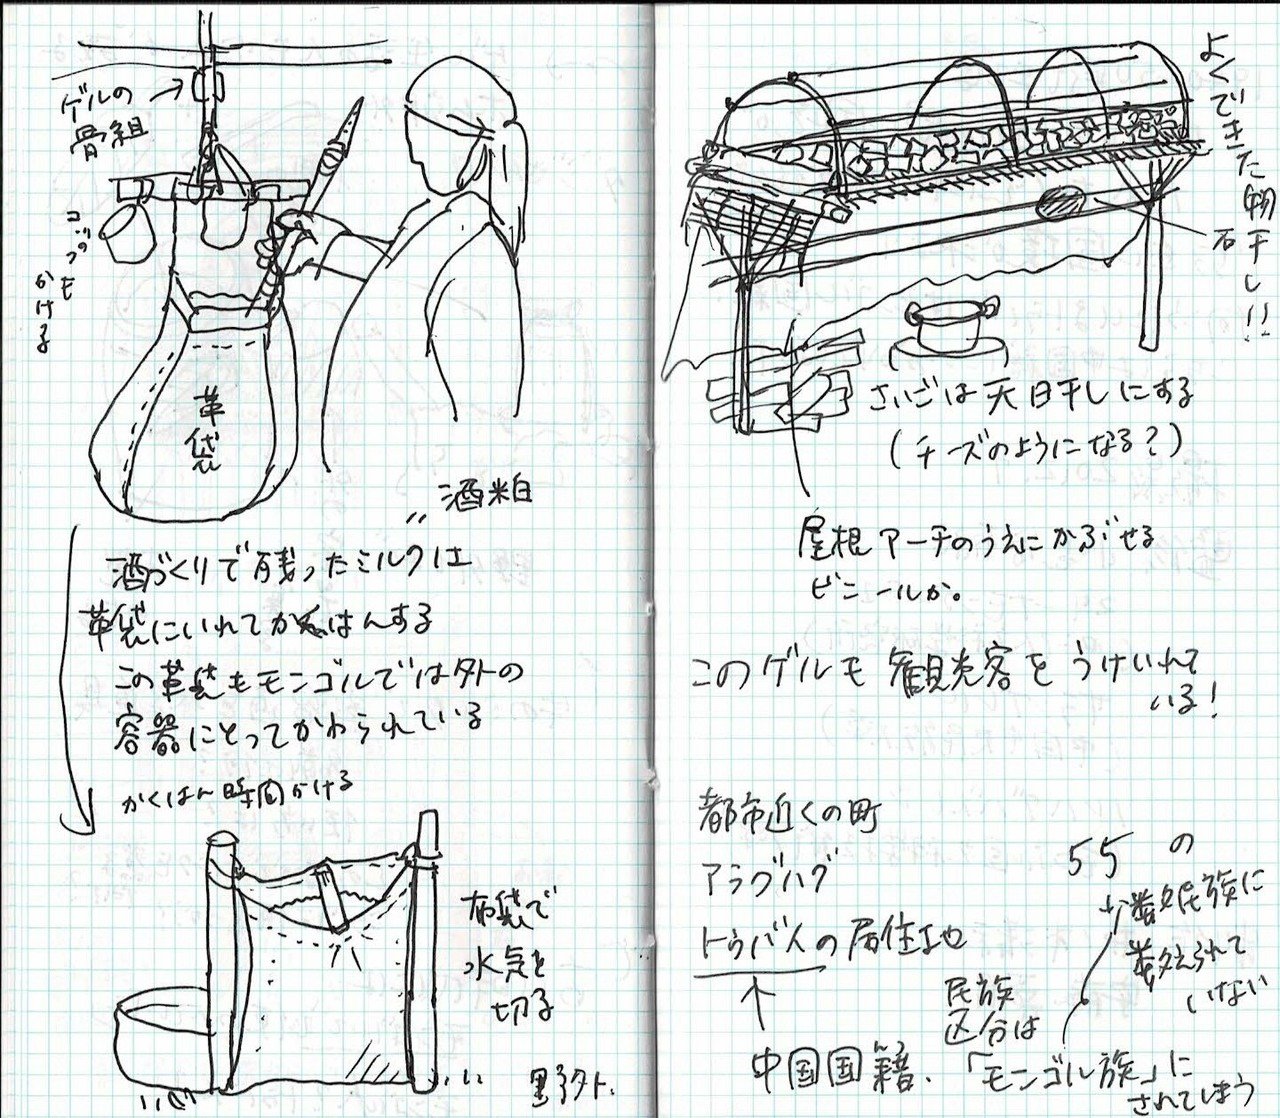 ゲルの
骨組
コップも
かける
革
袋
〃酒粕
酒づくりで残ったミルクは
革袋にいれてかくはんする
この革袋もモンゴルでは外の
容器にとってかわられている
かくはん時間かける
布袋で
水気を
切る
野外.
よくできた物干し!!
石
さいごは天日干しにする
(チーズのようになる?)
屋根アーチのうえにかぶせる
ビニールか。
このゲルも観光客をうけいれて
いる!
都市近くの町
アラグハグ
トゥバ人の居住地
中国国籍.
んろ
55の
少数民族に
数えられて
いない
民族
区分は
「モンゴル族」に
されてしまう